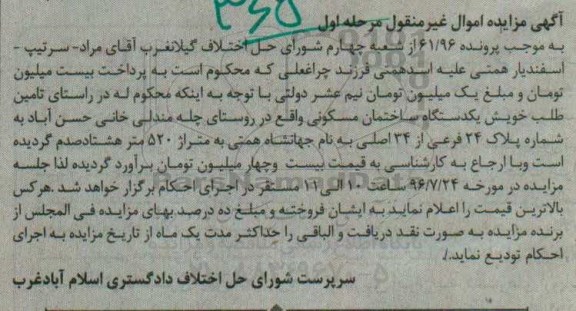 آگهی مزایده اموال غیرمنقول مرحله اول
به موجب پرونده ۶۱/۹۶ از شعبه چهارم شورای حل اختلاف گیلانغرب آقای مراد- سرتیپ -
اسفندیار همتی علیه اسدهمتی فرزند چراغعلی که محکوم است به پرداخت بیست میلیون
تومان و مبلغ یک میلیون تومان نیم عشر دولتی با توجه به اینکه محکوم له در راستای تامین
طلب خویش یکدستگاه ساختمان مسکونی واقع در روستای چله مندلی خانی حسن آباد به
شماره پلاک ۲۴ فرعی از ۳۴ اصلی به نام جهانشاه همتی به متراژ ۵۲۰ متر هشتادصدم گردیده
است وبا ارجاع به کارشناسی به قیمت بیست وچهار میلیون تومان برآورد گردیده لذا جلسه
مزایده در مورخه ۹۶/۷/۲۴ ساعت ۱۰ الی ۱۱ مستقر در اجرای احکام برگزار خواهد شد .هرکس
بالاترین قیمت را اعلام نماید به ایشان فروخته و مبلغ ده درصد بهای مزایده فی المجلس از
برنده مزایده به صورت نقد دریافت و الباقی را حداکثر مدت یک ماه از تاریخ مزایده به اجرای
احکام تودیع نماید./.
سرپرست شورای حل اختلاف دادگستری اسلام آبادغرب